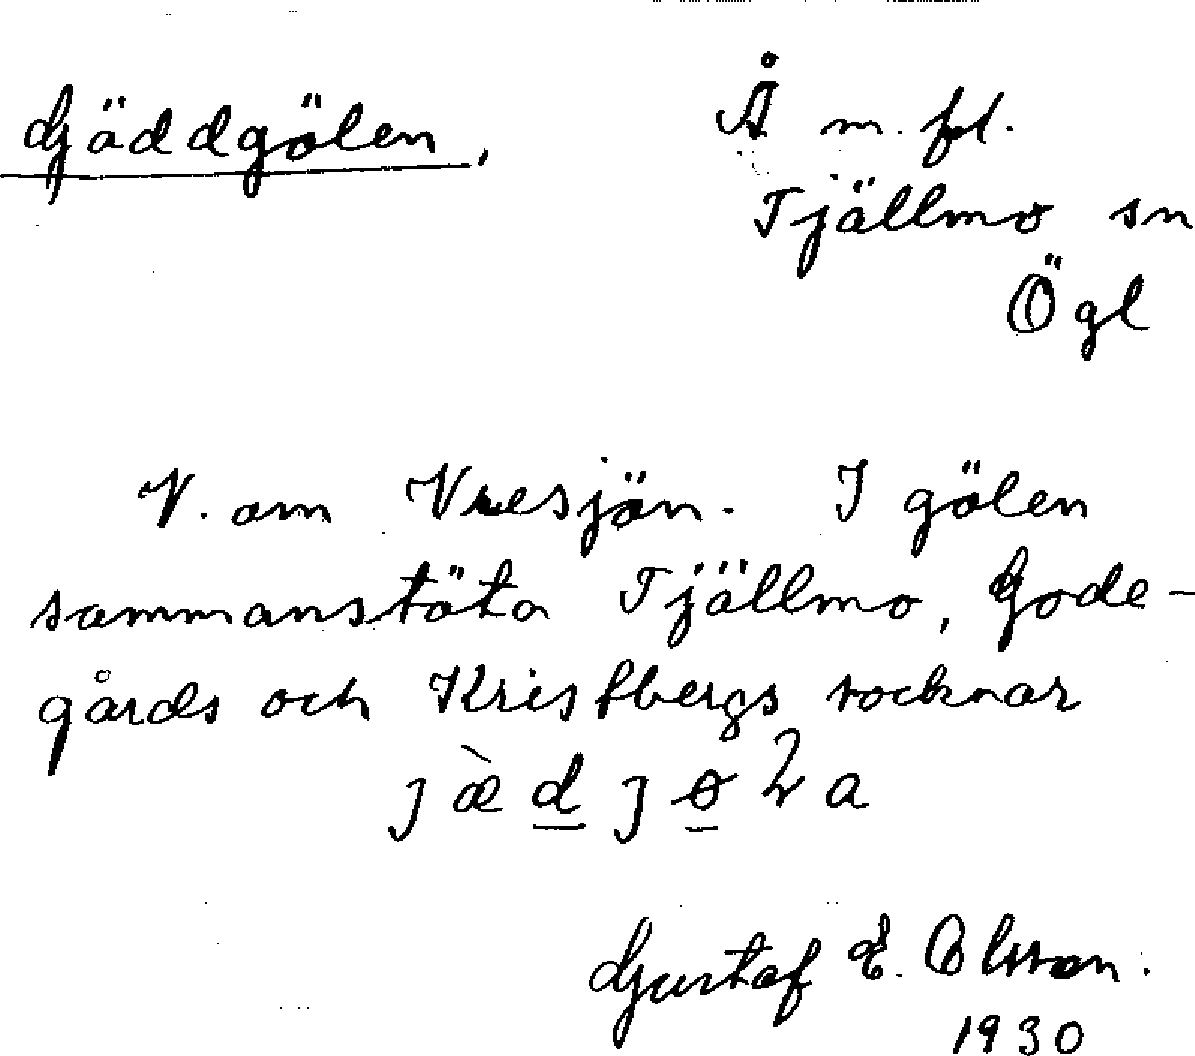 Gäddgölen,
Å m. fl.
Tjällmo sn
Ögl
V. om Vresjön. I gölen
sammanstöta Tjällmo, Gode-
gårds och Kristbergs socknar
Gustaf E. Olsson.
1930